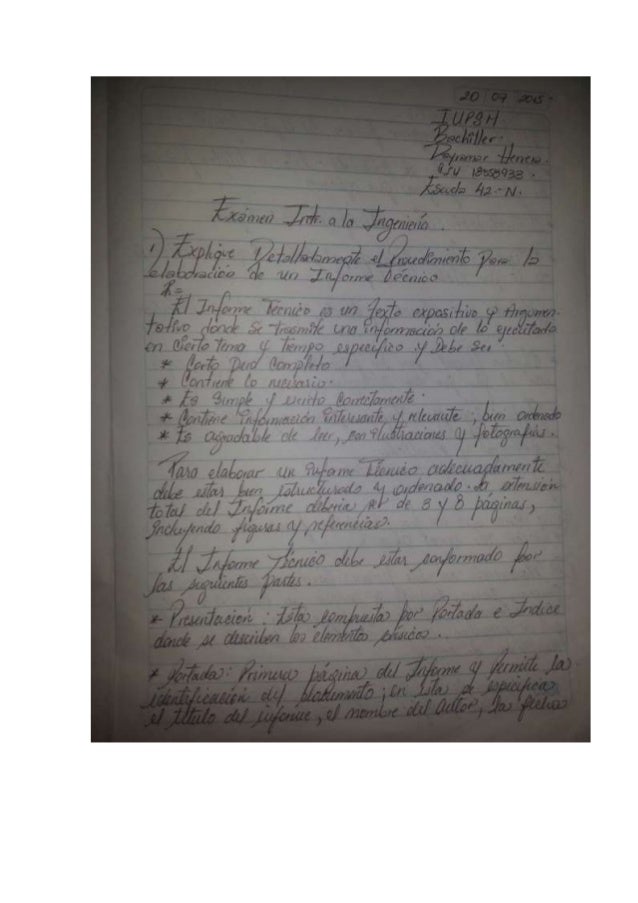 20 09 2015
IUPSM
Bachiller
Herrera
Esuda 42-N.
Exámen Intr. a la Ingeniería.
1) Explique Detalladamente el Procedimiento para la
elaboración de un Informe Técnico
R=
El Informe Técnico es un Texto expositivo y Argumen-
tativo donde se trasmite una información de lo ejecutado
en Cierto tema y Tiempo especifico y Debe Ser
* Corto Pero Completo
* Contiene lo necesario.
* Es Simple y escrito Correctamente.
* Contiene Información interesante y relevante, bien ordenado
* Es agradable de leer, con ilustraciones y fotografías.
Para elaborar un Informe Técnico adecuadamente
debe estar bien estructurado y ordenado. La extensión
total del Informe debería de 3 y 8 páginas,
Incluyendo figuras y referencias.
El Informe Técnico debe estar conformado por
las siguientes partes.
* Presentación: Esta compuesta por Portada e Indice
donde se describen los elementos básicos.
* Portada: Primera página del Informe y permite la
identificación del documento; en esta se especifica
el título del informe, el nombre del autor, la fecha